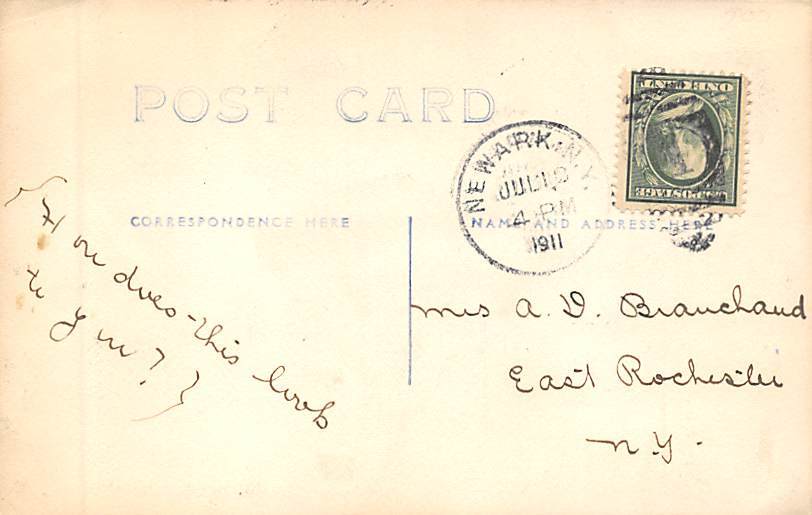 POST CARD
NEWARK, N.Y.
JUL 10
4 PM
1911
ONE CENT
U.S. POSTAGE
CORRESPONDENCE HERE
NAME AND ADDRESS HERE
{ How does this look
to you? }
Mrs A. D. Branchaud
East Rochester
N.Y.